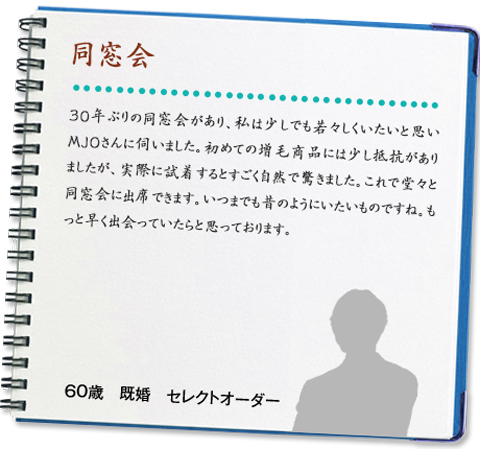 同窓会
30年ぶりの同窓会があり、私は少しでも若々しくいたいと思い
MJOさんに伺いました。初めての増毛商品には少し抵抗があり
ましたが、実際に試着するとすごく自然で驚きました。これで堂々と
同窓会に出席できます。いつまでも昔のようにいたいものですね。も
っと早く出会っていたらと思っております。
60歳　既婚　セレクトオーダー